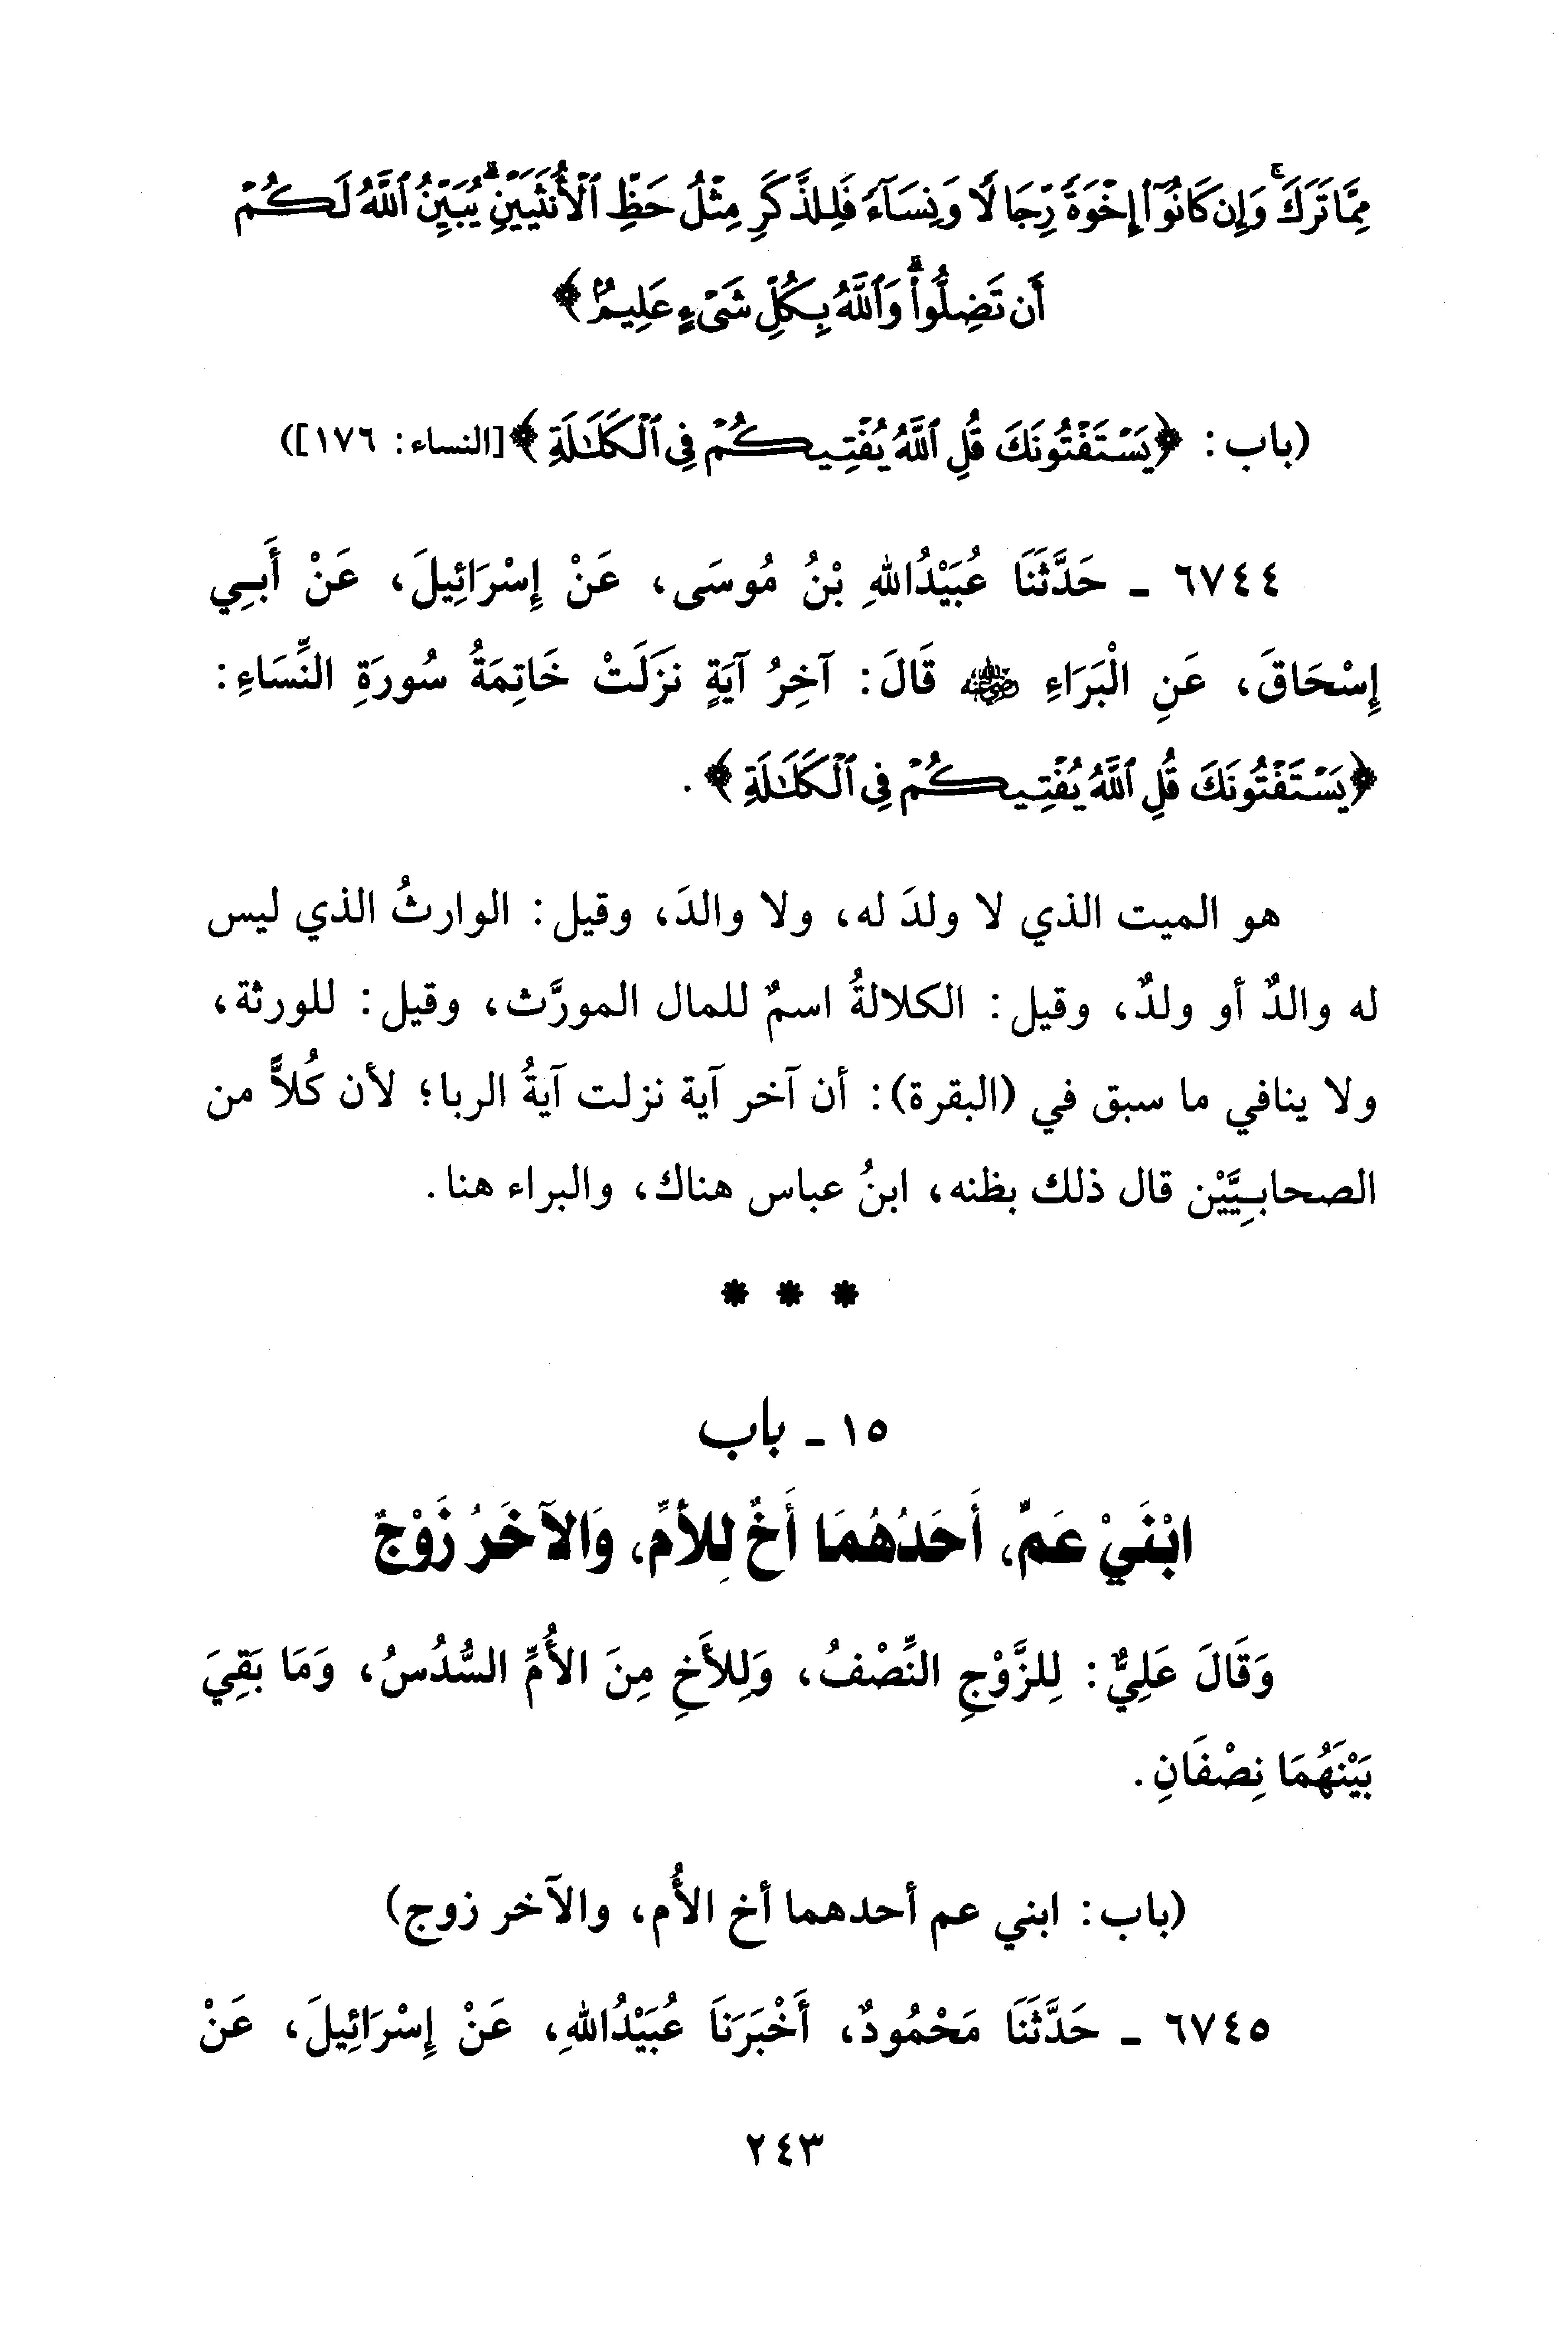 مِمَّا تَرَكَ ۚ وَإِن كَانُوٓا۟ إِخْوَةً رِّجَالًا وَنِسَآءً فَلِلذَّكَرِ مِثْلُ حَظِّ ٱلْأُنثَيَيْنِ ۗ يُبَيِّنُ ٱللَّهُ لَكُمْ
أَن تَضِلُّوا۟ ۗ وَٱللَّهُ بِكُلِّ شَىْءٍ عَلِيمٌۢ ﴾
(باب: ﴿يَسْتَفْتُونَكَ قُلِ ٱللَّهُ يُفْتِيكُمْ فِى ٱلْكَلَٰلَةِ ﴾ [النساء: ١٧٦])
٦٧٤٤ ـ حَدَّثَنَا عُبَيْدُاللهِ بْنُ مُوسَى، عَنْ إِسْرَائِيلَ، عَنْ أَبِي
إِسْحَاقَ، عَنِ الْبَرَاءِ رضي الله عنه قَالَ: آخِرُ آيَةٍ نَزَلَتْ خَاتِمَةُ سُورَةِ النِّسَاءِ:
﴿يَسْتَفْتُونَكَ قُلِ ٱللَّهُ يُفْتِيكُمْ فِى ٱلْكَلَٰلَةِ ﴾.
هو الميت الذي لا ولدَ له، ولا والدَ، وقيل: الوارثُ الذي ليس
له والدٌ أو ولدٌ، وقيل: الكلالةُ اسمٌ للمال المورَّث، وقيل: للورثة،
ولا ينافي ما سبق في (البقرة): أن آخر آية نزلت آيةُ الربا؛ لأن كُلاًّ من
الصحابِيَّيْن قال ذلك بظنه، ابنُ عباس هناك، والبراء هنا.
* * *
١٥ ـ باب
ابْنَيْ عَمٍّ، أَحَدُهُمَا أَخٌ لِلأمِّ، وَالآخَرُ زَوْجٌ
وَقَالَ عَلِيٌّ: لِلزَّوْجِ النِّصْفُ، وَلِلأَخِ مِنَ الأُمِّ السُّدُسُ، وَمَا بَقِيَ
بَيْنَهُمَا نِصْفَانِ.
(باب: ابني عم أحدهما أخ الأُم، والآخر زوج)
٦٧٤٥ ـ حَدَّثَنَا مَحْمُودٌ، أَخْبَرَنَا عُبَيْدُاللهِ، عَنْ إِسْرَائِيلَ، عَنْ
٢٤٣